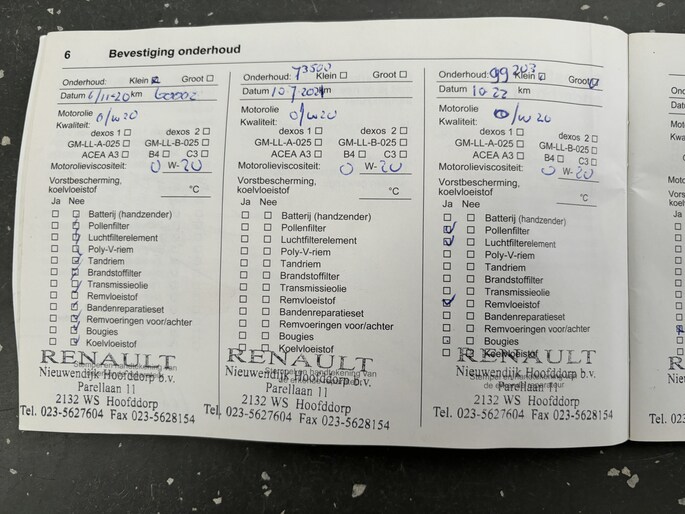 6 Bevestiging onderhoud
Onderhoud: Klein ☑ Groot ☐
Datum 6/11-20 km 60002
Motorolie 0/W20
Kwaliteit:
dexos 1 ☐ dexos 2 ☐
GM-LL-A-025 ☐ GM-LL-B-025 ☐
ACEA A3 ☐ B4 ☐ C3 ☐
Motorolieviscositeit: 0 W- 20
Vorstbescherming,
koelvloeistof °C
Ja Nee
Batterij (handzender)
Pollenfilter
Luchtfilterelement
Poly-V-riem
Tandriem
Brandstoffilter
Transmissieolie
Remvloeistof
Bandenreparatieset
Remvoeringen voor/achter
Bougies
Koelvloeistof
RENAULT
Nieuwendijk Hoofddorp b.v.
Parellaan 11
2132 WS Hoofddorp
Tel. 023-5627604 Fax 023-5628154
Onderhoud: 73500 Klein ☐ Groot ☐
Datum 10 7 2021 km
Motorolie 0/W20
Kwaliteit:
dexos 1 ☐ dexos 2 ☐
GM-LL-A-025 ☐ GM-LL-B-025 ☐
ACEA A3 ☐ B4 ☐ C3 ☐
Motorolieviscositeit: 0 W- 20
Vorstbescherming,
koelvloeistof °C
Ja Nee
Batterij (handzender)
Pollenfilter
Luchtfilterelement
Poly-V-riem
Tandriem
Brandstoffilter
Transmissieolie
Remvloeistof
Bandenreparatieset
Remvoeringen voor/achter
Bougies
Koelvloeistof
RENAULT
Nieuwendijk Hoofddorp b.v.
Parellaan 11
2132 WS Hoofddorp
Tel. 023-5627604 Fax 023-5628154
Onderhoud: 99203 Klein ☐ Groot ☑
Datum 10 22 km
Motorolie 0/W20
Kwaliteit:
dexos 1 ☐ dexos 2 ☐
GM-LL-A-025 ☐ GM-LL-B-025 ☐
ACEA A3 ☐ B4 ☐ C3 ☐
Motorolieviscositeit: 0 W- 20
Vorstbescherming,
koelvloeistof °C
Ja Nee
Batterij (handzender)
Pollenfilter
Luchtfilterelement
Poly-V-riem
Tandriem
Brandstoffilter
Transmissieolie
Remvloeistof
Bandenreparatieset
Remvoeringen voor/achter
Bougies
Koelvloeistof
RENAULT
Nieuwendijk Hoofddorp b.v.
Parellaan 11
2132 WS Hoofddorp
Tel. 023-5627604 Fax 023-5628154